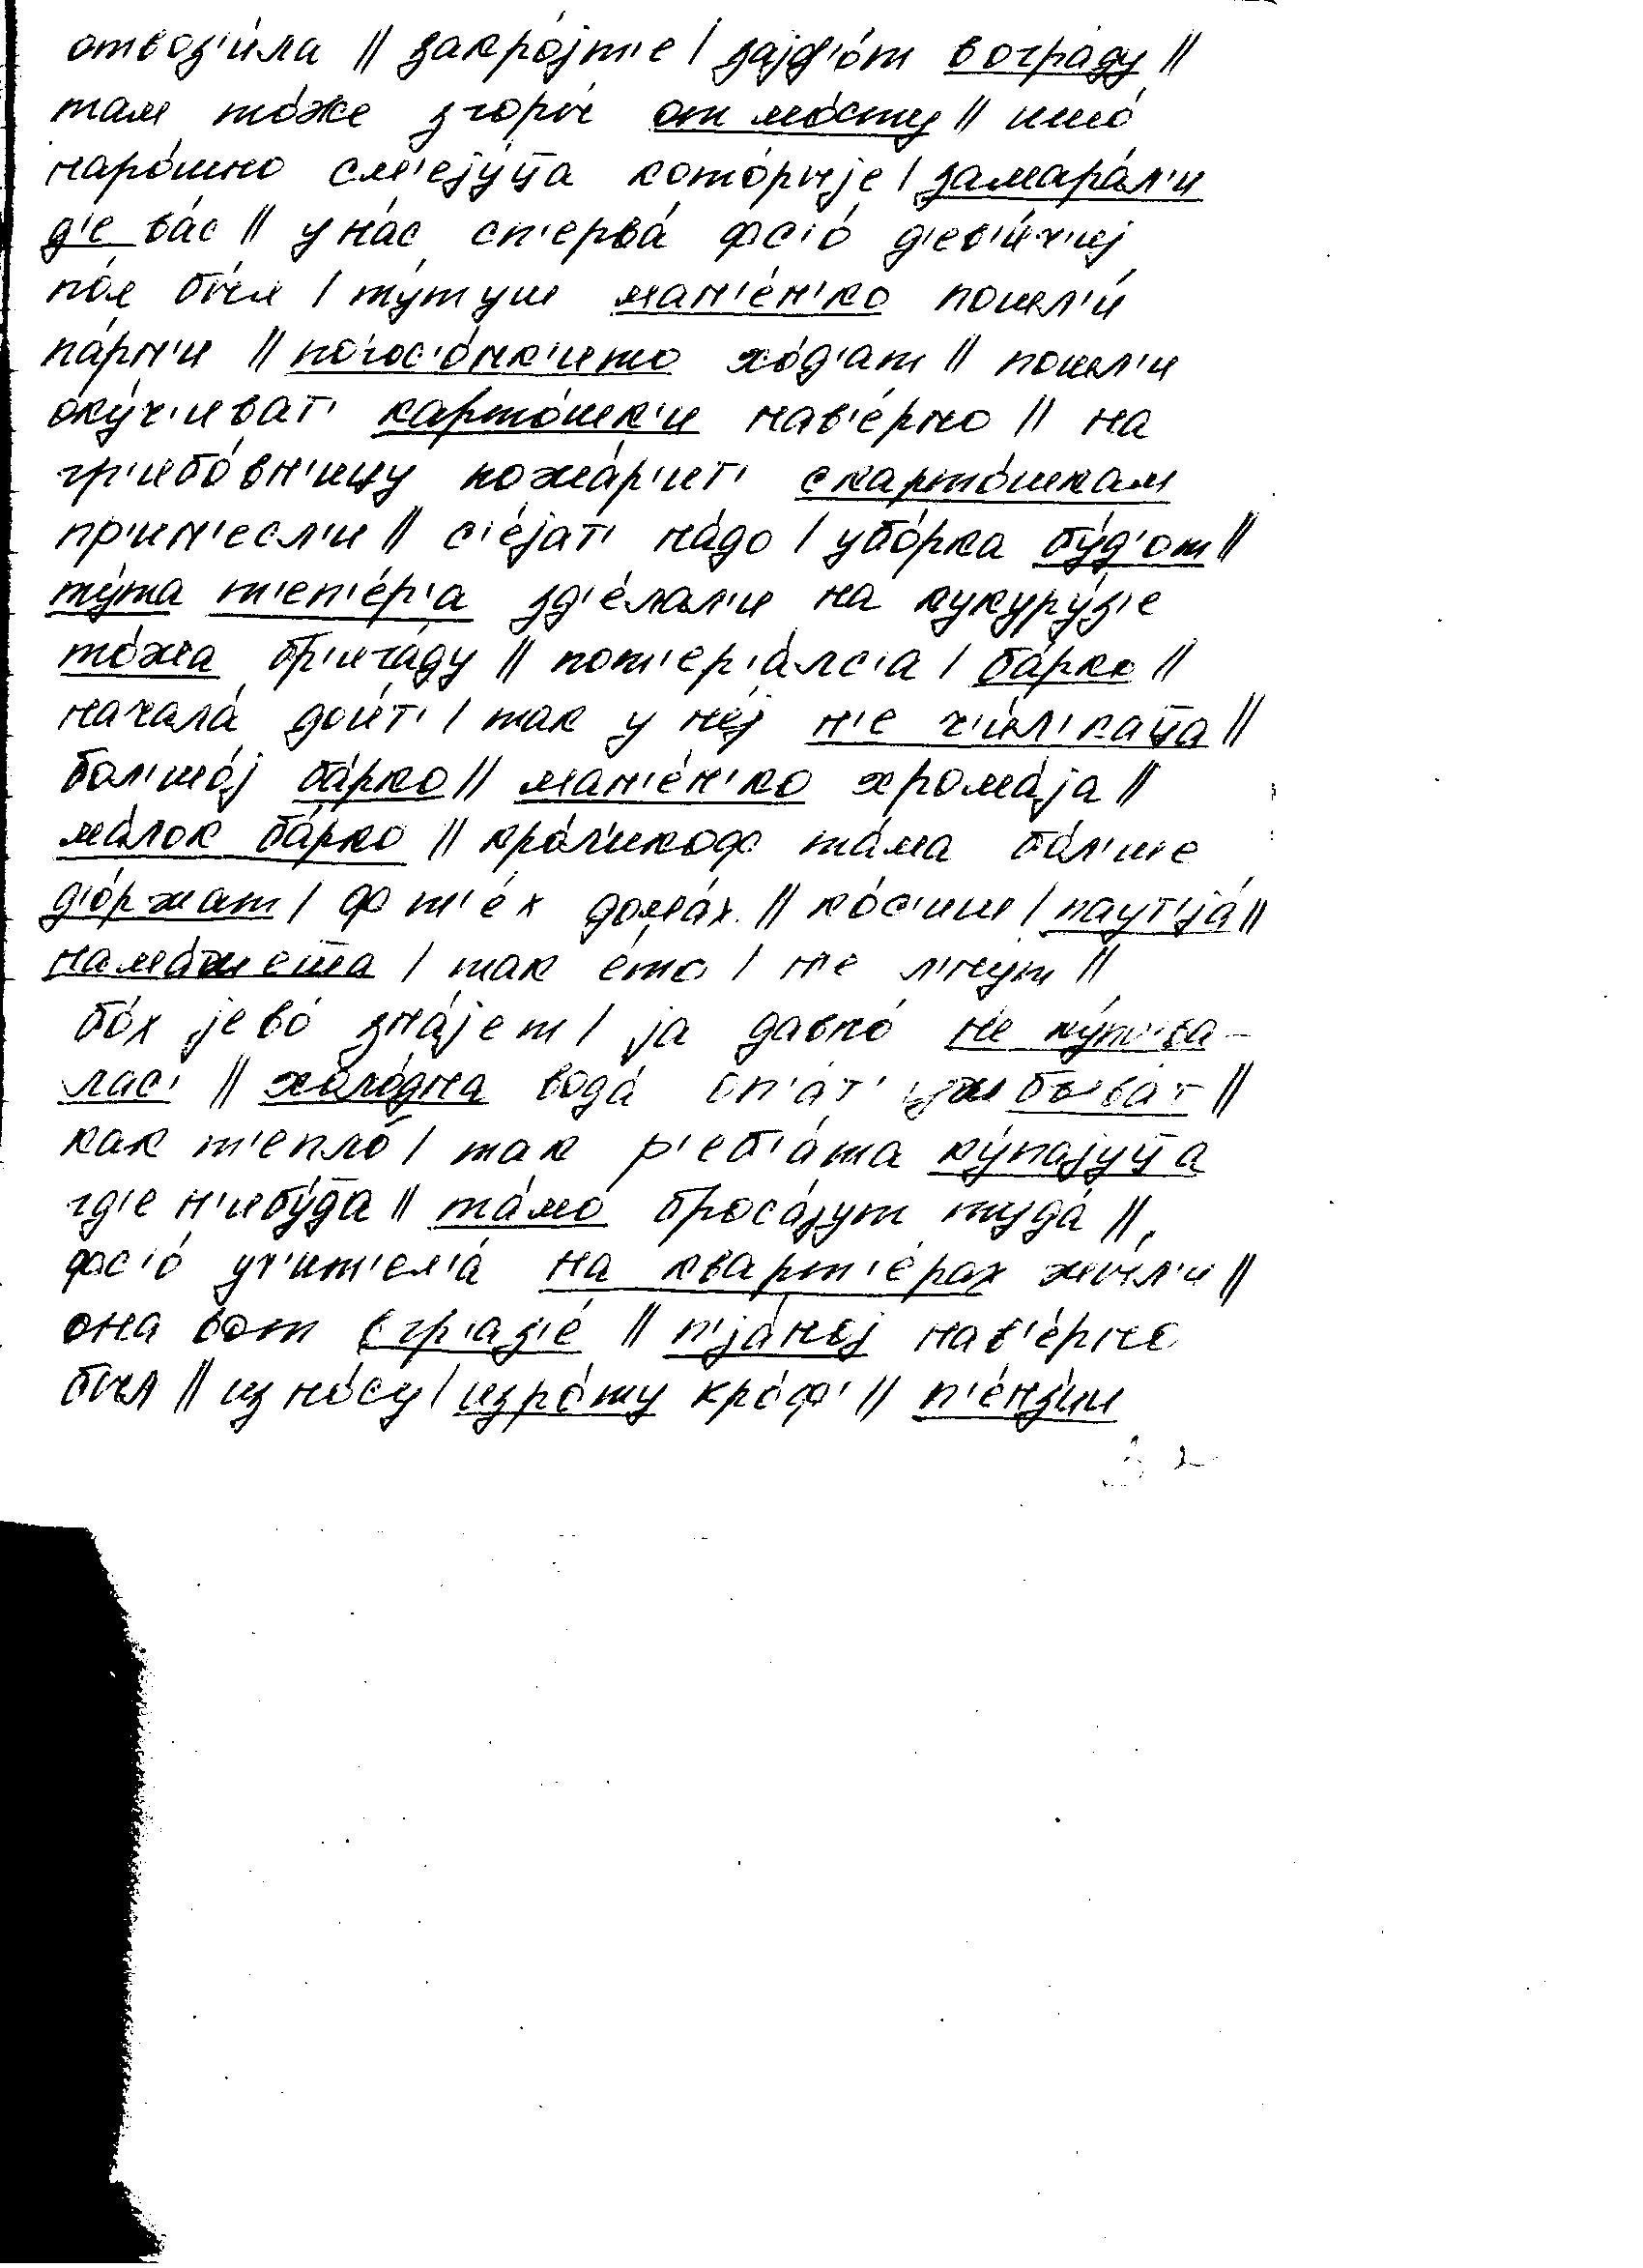 отвоз'и́ла || закро́јт'е | зајд'о́т вогра́ду ||
там то́же згоры́ от мо́сту || што́
наро́шно см'еју́ц̅а кото́рыје | замара́л'и
д'е ва́с || у на́с сп'ерва́ фс'о́ д'ев'и́ч'иј
по́л бы́л | ту́туш ман'е́н'ко пошл'и́
па́рн'и || по́гос'о́нк'ито хо́д'ат || пошл'и
оку́ч'иват' карто́шк'и нав'е́рно || на
гр'ибо́вн'ицу пожа́р'ит' скарто́шкам
пр'ин'есл'и || с'е́јат' на́до | убо́рка бу́д'от ||
ту́та т'еп'е́р'а зд'е́лал'и на кукуру́з'е
то́жа бр'ига́ду || пот'ер'а́лс'а | ба́рко ||
начала́ дои́т' | так у не́ј н'е ч'и́л'кац̅а ||
бол'шо́ј ба́рко || ман'е́н'ко хрома́ја ||
ма́лок ба́рко || кро́л'икоф та́ма бо́л'ше
д'о́ржат | ф т'е́х дома́х || ко́с'иш | паут'ја́ ||
нама́жет̅а | так е́то | н'е л'ну́т ||
бо́х јево́ зна́јет | ја давно́ н'е ку́пыва-
лас' || холо́дна вода́ оп'а́т' быва́т ||
как т'епло́ | так р'еб'а́та ку́пајуц̅а
гд'е н'ибу́д̅а || та́мо броса́јут туда́ ||
фс'о́ уч'ит'ел'а́ на кварт'е́рах жы́л'и ||
она вот вгр'аз'е́ || п'ја́ној нав'е́рно
бы́л || из но́су | изро́ту кро́ф' || п'е́нз'ии